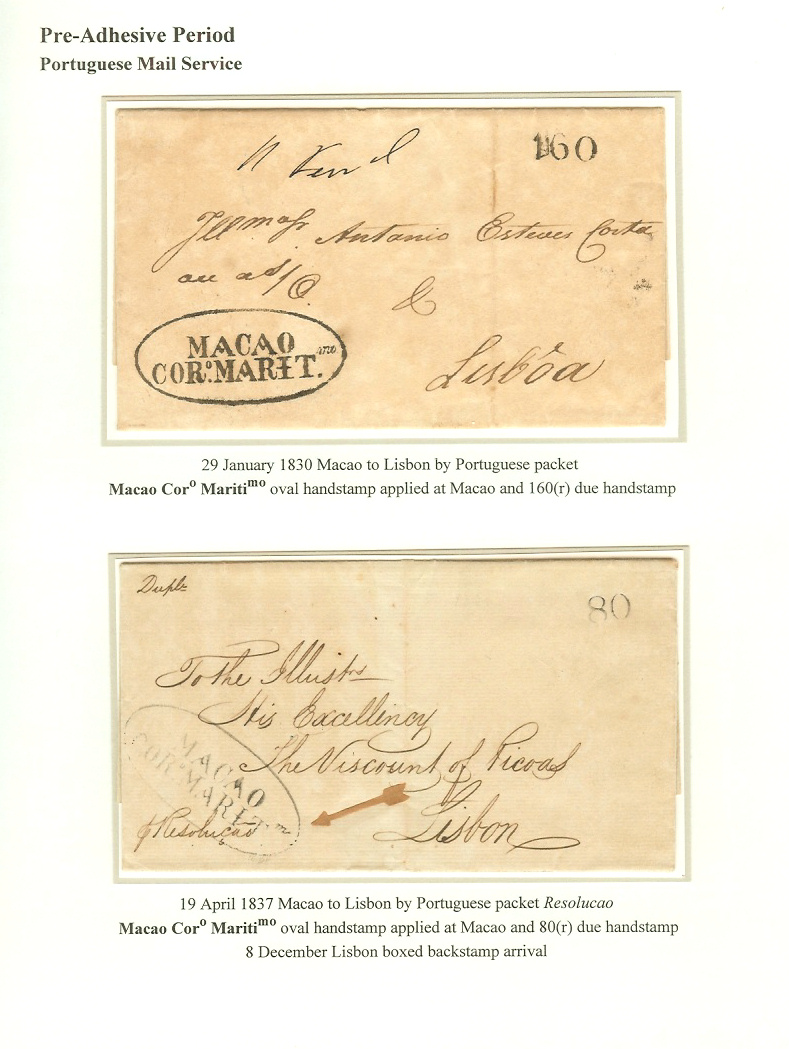 Pre-Adhesive Period
Portuguese Mail Service
160
Illmo Sr Antonio Esteves Costa
&
MACAO
CORO. MARIT.mo
Lisbôa
29 January 1830 Macao to Lisbon by Portuguese packet
Macao Coro Maritimo oval handstamp applied at Macao and 160(r) due handstamp
Duplte
80
To the Illustrs
His Excellency
The Viscount of Picoas
Lisbon
MACAO
CORO. MARIT.mo
p Resolucao
19 April 1837 Macao to Lisbon by Portuguese packet Resolucao
Macao Coro Maritimo oval handstamp applied at Macao and 80(r) due handstamp
8 December Lisbon boxed backstamp arrival